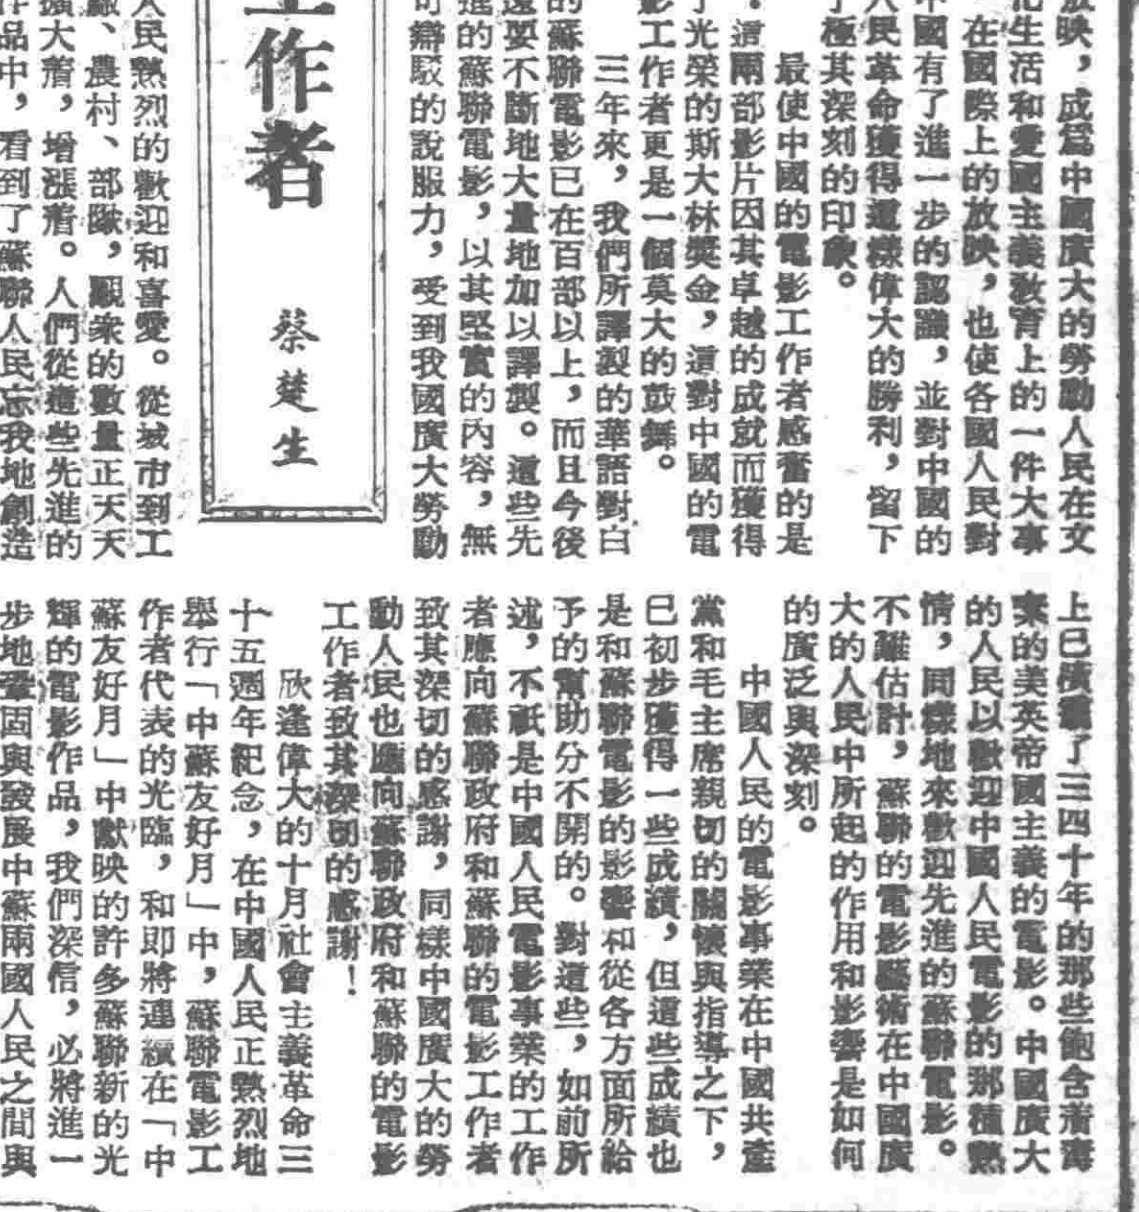 放映，成爲中國廣大的勞動人民在文
化生活和愛國主義教育上的一件大事
在國際上的放映，也使各國人民對
中國有了進一步的認識，並對中國的
人民革命獲得這樣偉大的勝利，留下
了極其深刻的印象。
最使中國的電影工作者感奮的是
這兩部影片因其卓越的成就而獲得
了光榮的斯大林獎金，這對中國的電
影工作者更是一個莫大的鼓舞。
三年來，我們所譯製的華語對白
的蘇聯電影已在百部以上，而且今後
還要不斷地大量地加以譯製。這些先
進的蘇聯電影，以其堅實的內容，無
可辯駁的說服力，受到我國廣大勞動
工作者
蔡楚生
人民熱烈的歡迎和喜愛。從城市到工
廠、農村、部隊，觀衆的數量正天天
擴大着，增漲着。人們從這些先進的
作品中，看到了蘇聯人民忘我地創造
上已橫霸了三四十年的那些飽含着毒
素的美英帝國主義的電影。中國廣大
的人民以歡迎中國人民電影的那種熱
情，同樣地來歡迎先進的蘇聯電影。
不難估計，蘇聯的電影藝術在中國廣
大的人民中所起的作用和影響是如何
的廣泛與深刻。
中國人民的電影事業在中國共產
黨和毛主席親切的關懷與指導之下，
已初步獲得一些成績，但這些成績也
是和蘇聯電影的影響和從各方面所給
予的幫助分不開的。對這些，如前所
述，不祇是中國人民電影事業的工作
者應向蘇聯政府和蘇聯的電影工作者
致其深切的感謝，同樣中國廣大的勞
動人民也應向蘇聯政府和蘇聯的電影
工作者致其深切的感謝！
欣逢偉大的十月社會主義革命三
十五週年紀念，在中國人民正熱烈地
舉行「中蘇友好月」中，蘇聯電影工
作者代表的光臨，和即將連續在「中
蘇友好月」中獻映的許多蘇聯新的光
輝的電影作品，我們深信，必將進一
步地鞏固與發展中蘇兩國人民之間與